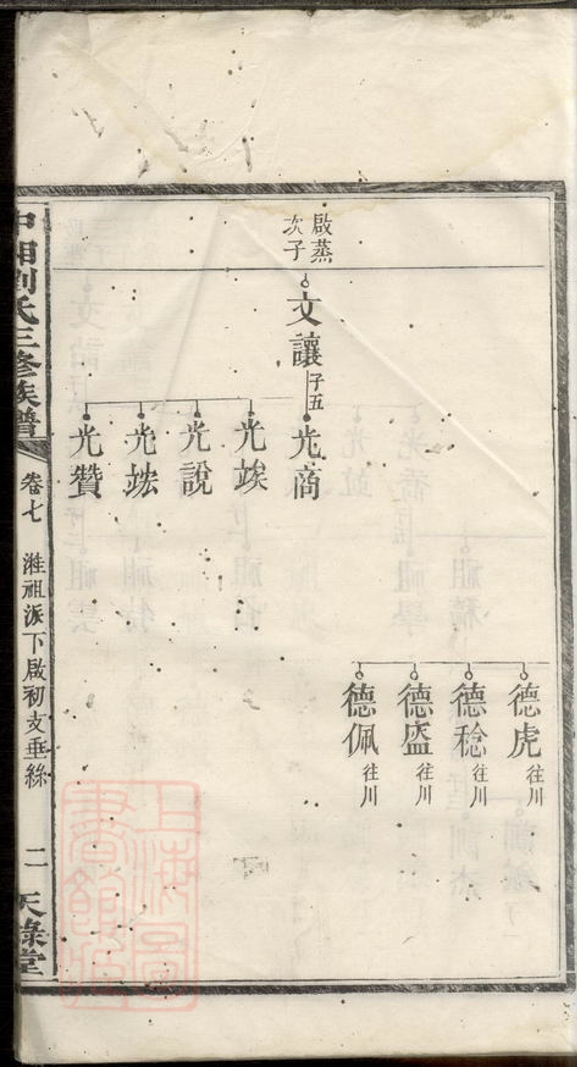 啟蒸
次子
文讓 子五
光商
光竢
光說
光竑
光贊
德虎 往川
德稔 往川
德盛 往川
德佩 往川
中湘劉氏三修族譜
卷七
淮祖派下啟初支垂絲
二
天祿堂
上海圖書館藏